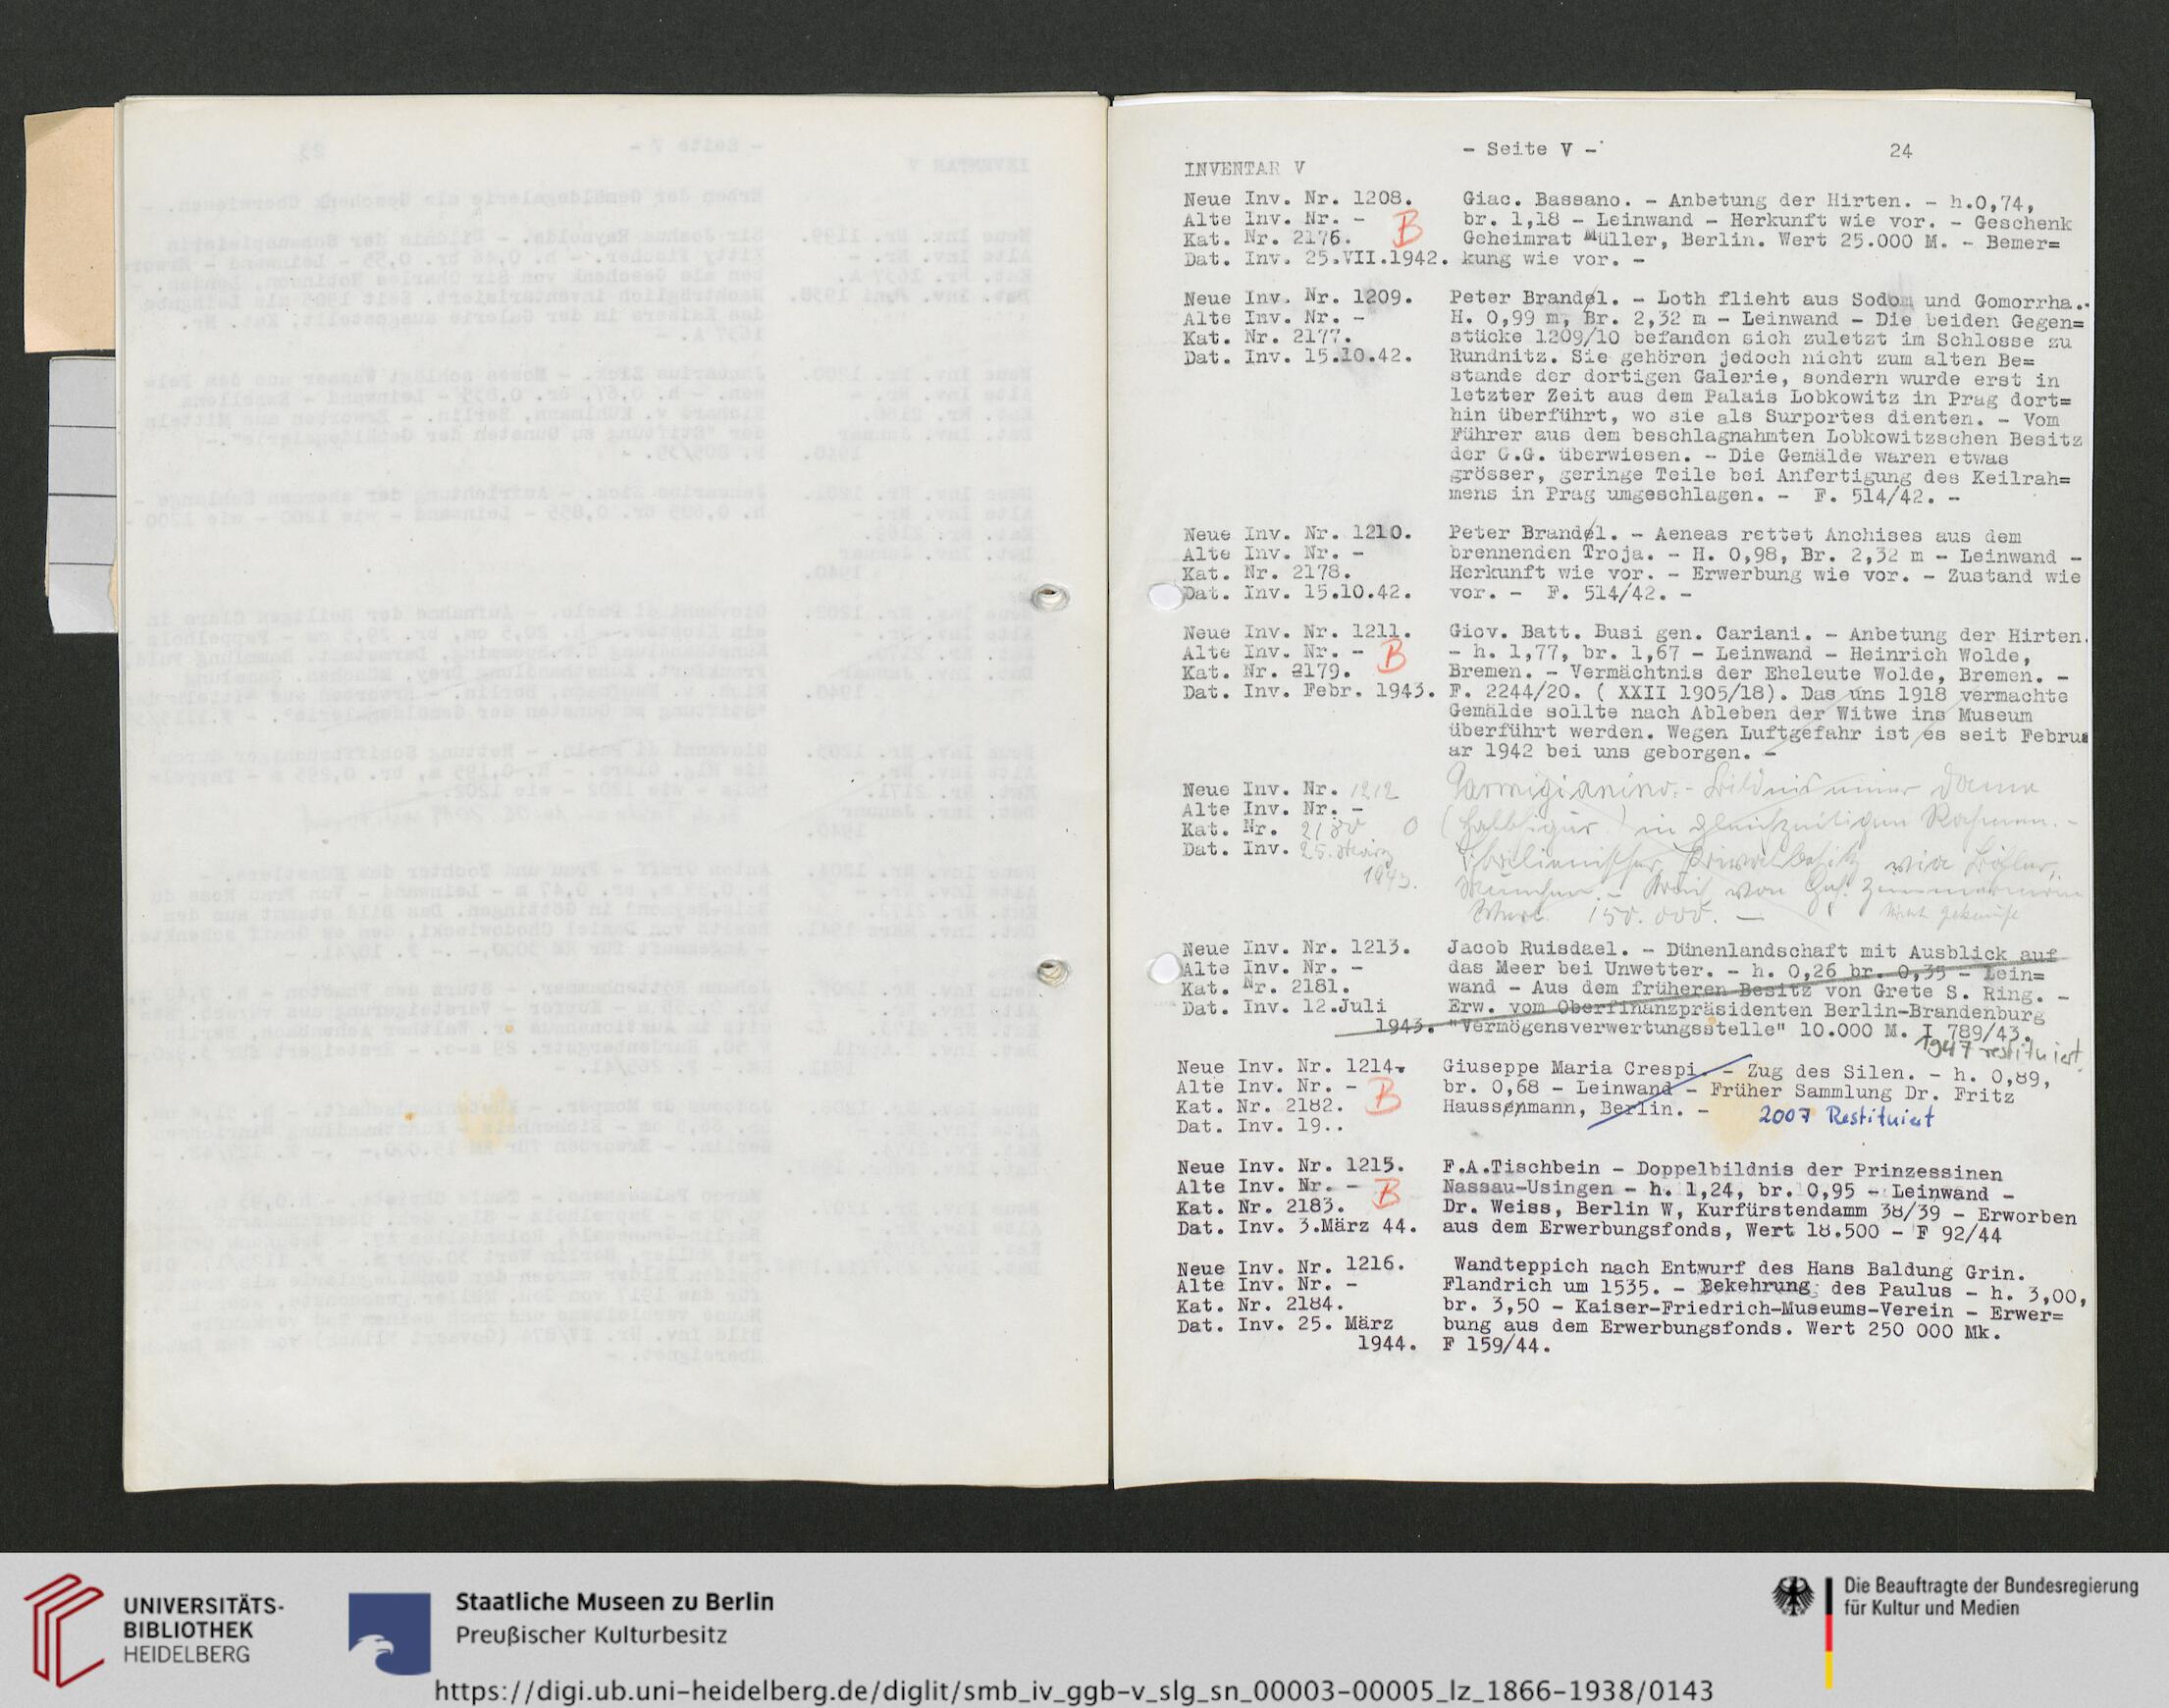 - Seite V -
24
INVENTAR V
Neue Inv. Nr. 1208. Giac. Bassano. - Anbetung der Hirten. - h.0,74,
Alte Inv. Nr. - B br. 1,18 - Leinwand - Herkunft wie vor. - Geschenk
Kat. Nr. 2176. Geheimrat Müller, Berlin. Wert 25.000 M. - Bemer=
Dat. Inv. 25.VII.1942. kung wie vor. -
Neue Inv. Nr. 1209. Peter Brandel. - Loth flieht aus Sodom und Gomorrha.
Alte Inv. Nr. - H. 0,99 m, Br. 2,32 m - Leinwand - Die beiden Gegen=
Kat. Nr. 2177. stücke 1209/10 befanden sich zuletzt im Schlosse zu
Dat. Inv. 15.10.42. Rundnitz. Sie gehören jedoch nicht zum alten Be=
stande der dortigen Galerie, sondern wurde erst in
letzter Zeit aus dem Palais Lobkowitz in Prag dort=
hin überführt, wo sie als Surportes dienten. - Vom
Führer aus dem beschlagnahmten Lobkowitzschen Besitz
der G.G. überwiesen. - Die Gemälde waren etwas
grösser, geringe Teile bei Anfertigung des Keilrah=
mens in Prag umgeschlagen. - F. 514/42. -
Neue Inv. Nr. 1210. Peter Brandel. - Aeneas rettet Anchises aus dem
Alte Inv. Nr. - brennenden Troja. - H. 0,98, Br. 2,32 m - Leinwand -
Kat. Nr. 2178. Herkunft wie vor. - Erwerbung wie vor. - Zustand wie
Dat. Inv. 15.10.42. vor. - F. 514/42. -
Neue Inv. Nr. 1211. Giov. Batt. Busi gen. Cariani. - Anbetung der Hirten.
Alte Inv. Nr. - B - h. 1,77, br. 1,67 - Leinwand - Heinrich Wolde,
Kat. Nr. 2179. Bremen. - Vermächtnis der Eheleute Wolde, Bremen. -
Dat. Inv. Febr. 1943. F. 2244/20. ( XXII 1905/18). Das uns 1918 vermachte
Gemälde sollte nach Ableben der Witwe ins Museum
überführt werden. Wegen Luftgefahr ist es seit Febru
ar 1942 bei uns geborgen. -
Neue Inv. Nr. 1212 Parmigianino. - Bildnis einer Dame
Alte Inv. Nr. -
Kat. Nr. 2180 0 (Halbfigur) in gleichzeitigem Rahmen. -
Dat. Inv. 25. März Privatbesitz
1943. München. - von Zimmermann
Wert 150.000. - nicht gekauft
Neue Inv. Nr. 1213. Jacob Ruisdael. - Dünenlandschaft mit Ausblick auf
Alte Inv. Nr. - das Meer bei Unwetter. - h. 0,26 br. 0,35 - Lein=
Kat. Nr. 2181. wand - Aus dem früheren Besitz von Grete S. Ring. -
Dat. Inv. 12.Juli Erw. vom Oberfinanzpräsidenten Berlin-Brandenburg
1943. "Vermögensverwertungsstelle" 10.000 M. I 789/43.
1947 restituiert
Neue Inv. Nr. 1214. Giuseppe Maria Crespi. - Zug des Silen. - h. 0,89,
Alte Inv. Nr. - B br. 0,68 - Leinwand - Früher Sammlung Dr. Fritz
Kat. Nr. 2182. Haussenmann, Berlin. - 2007 Restituiert
Dat. Inv. 19..
Neue Inv. Nr. 1215. F.A.Tischbein - Doppelbildnis der Prinzessinen
Alte Inv. Nr. - B Nassau-Usingen - h. 1,24, br. 0,95 - Leinwand -
Kat. Nr. 2183. Dr. Weiss, Berlin W, Kurfürstendamm 38/39 - Erworben
Dat. Inv. 3.März 44. aus dem Erwerbungsfonds, Wert 18.500 - F 92/44
Neue Inv. Nr. 1216. Wandteppich nach Entwurf des Hans Baldung Grin.
Alte Inv. Nr. - Flandrich um 1535. - Bekehrung des Paulus - h. 3,00,
Kat. Nr. 2184. br. 3,50 - Kaiser-Friedrich-Museums-Verein - Erwer=
Dat. Inv. 25. März bung aus dem Erwerbungsfonds. Wert 250 000 Mk.
1944. F 159/44.
UNIVERSITÄTS-
BIBLIOTHEK
HEIDELBERG
Staatliche Museen zu Berlin
Preußischer Kulturbesitz
Die Beauftragte der Bundesregierung
für Kultur und Medien
https://digi.ub.uni-heidelberg.de/diglit/smb_iv_ggb-v_slg_sn_00003-00005_lz_1866-1938/0143